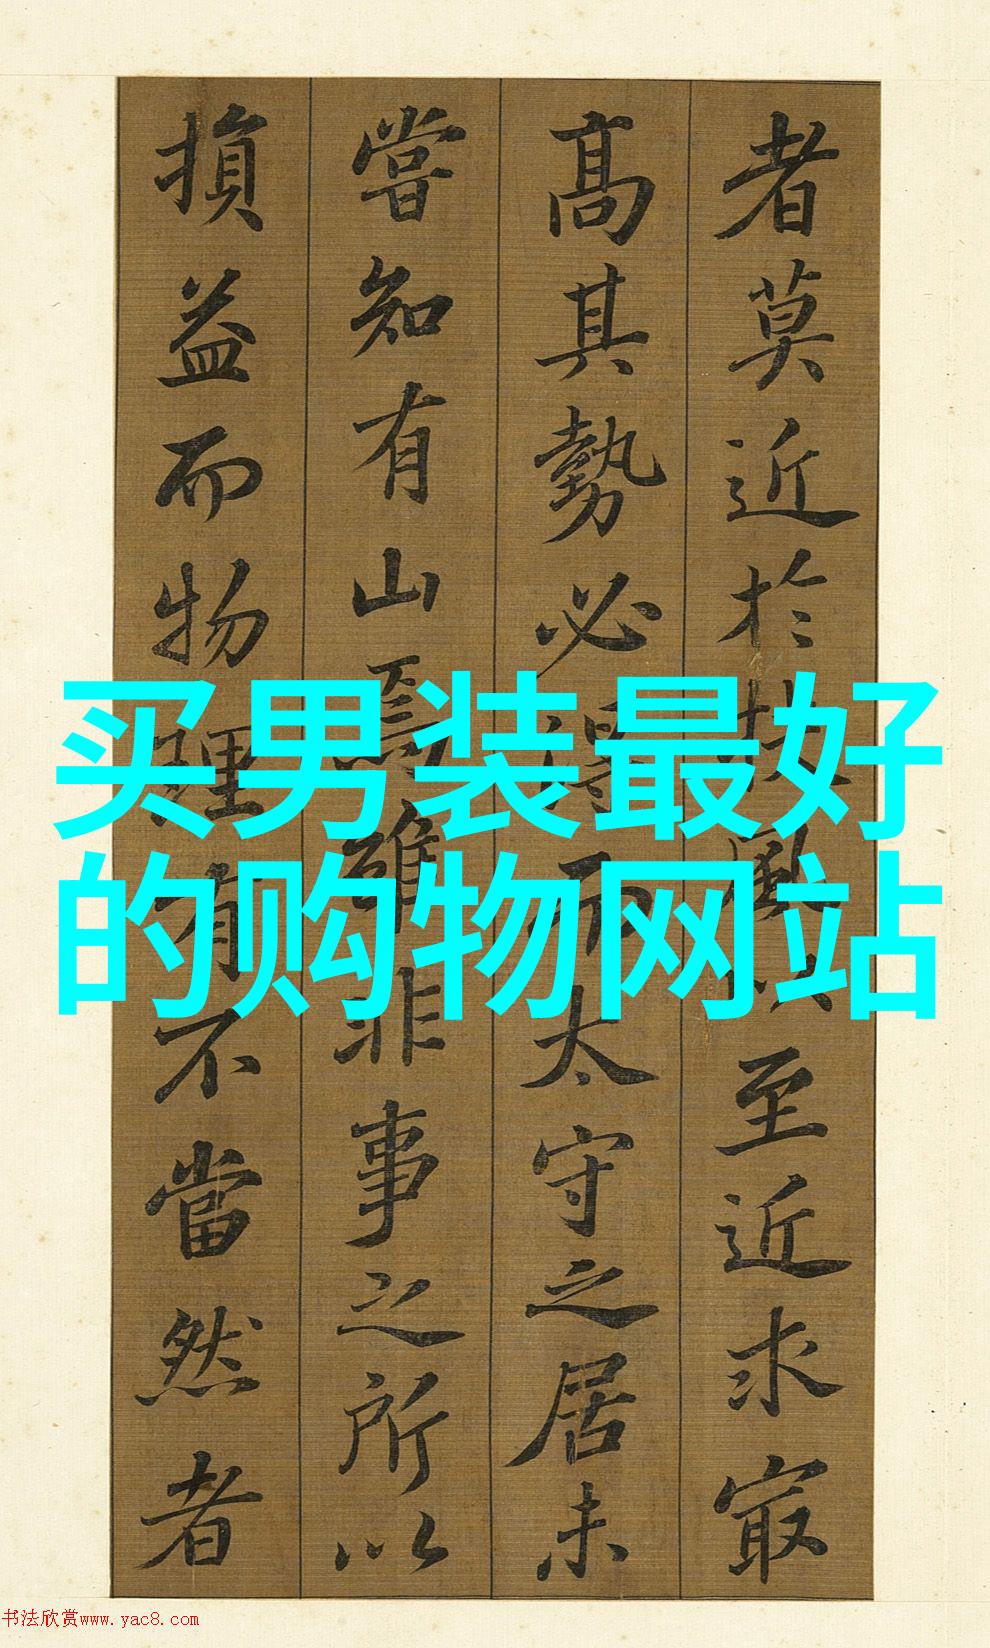 者莫近於扶風以至近求㝡
髙其勢必得而太守之居未
嘗知有山焉雖非事之所以
損益而物理有不當然者
买男装最好
的购物网站
书法欣赏www.yac8.com